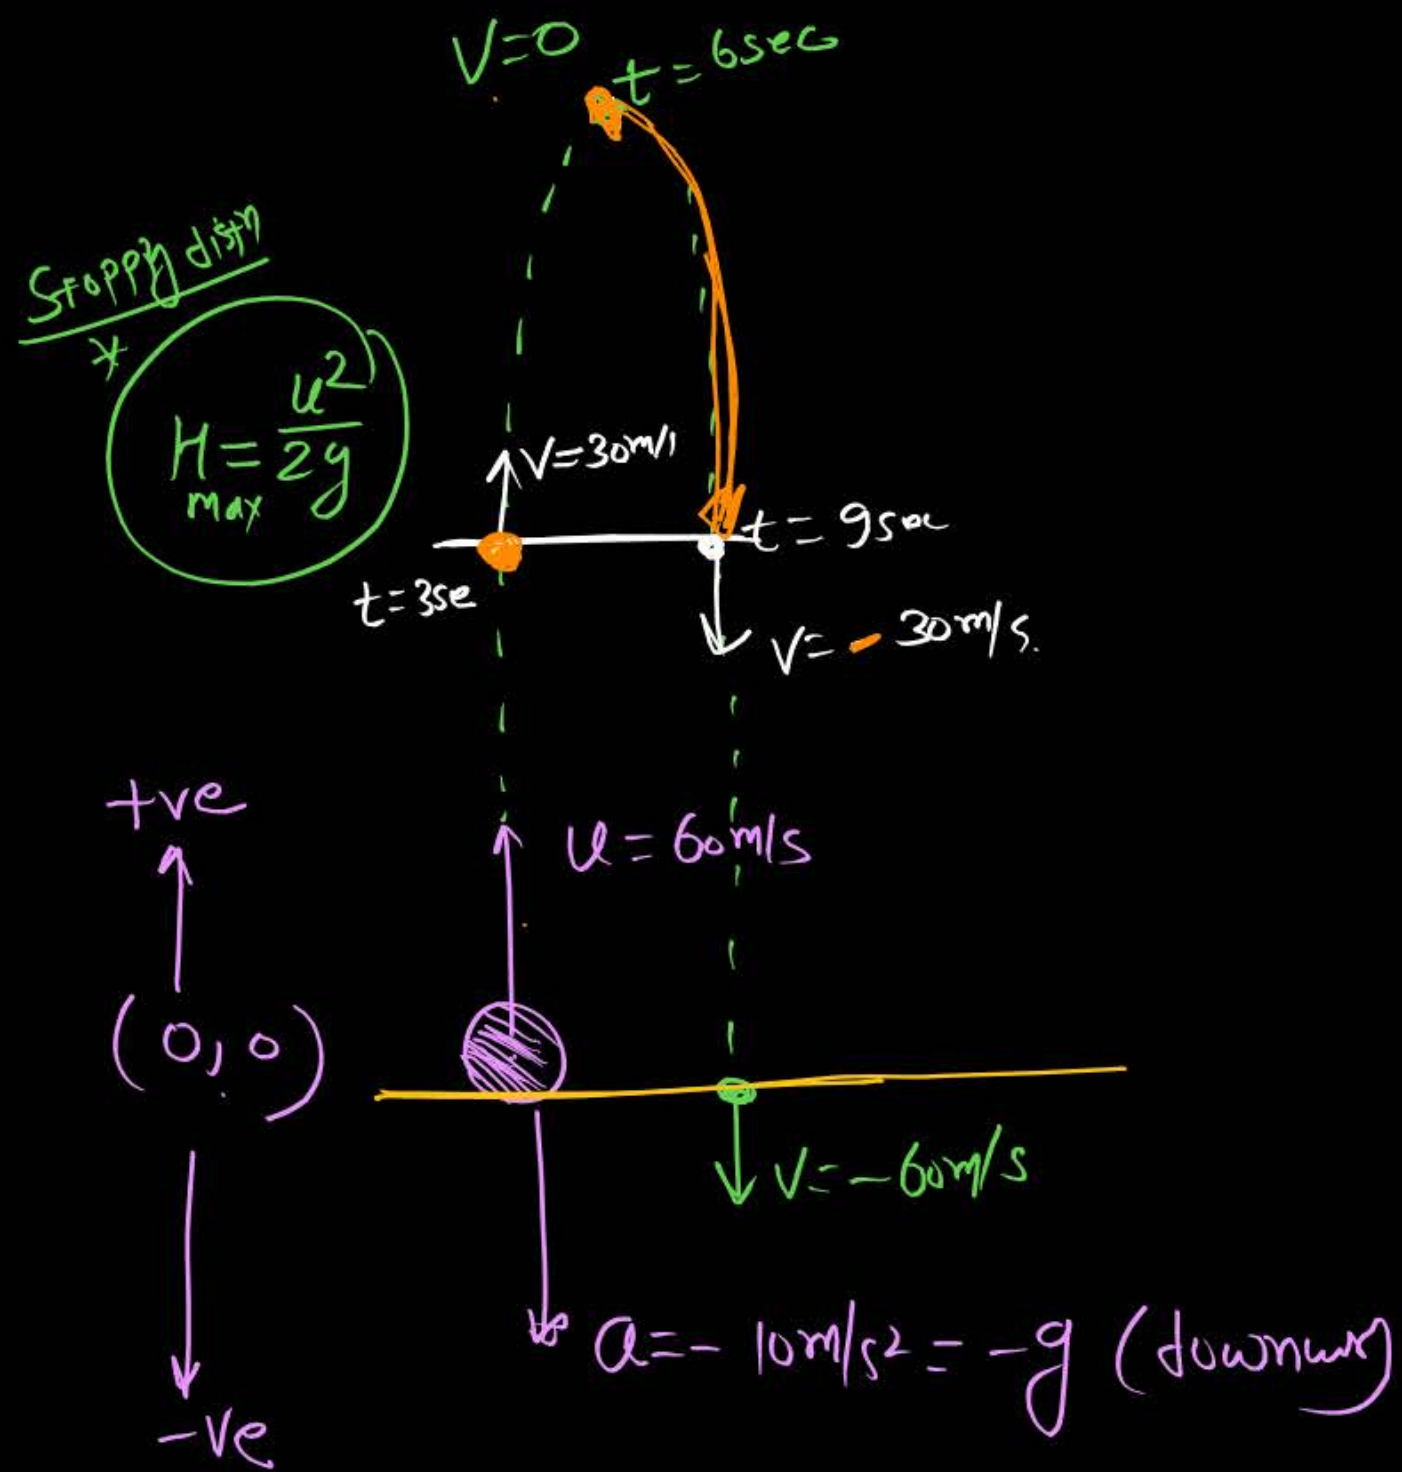 V=0
t=6sec
Stoppin distn
*
H max = u²/2g
V=30m/s
t=9sec
t=3se
V=-30m/s.
+ve
u=60m/s
(0,0)
V=-60m/s
a=-10m/s²=-g (downwr)
-ve